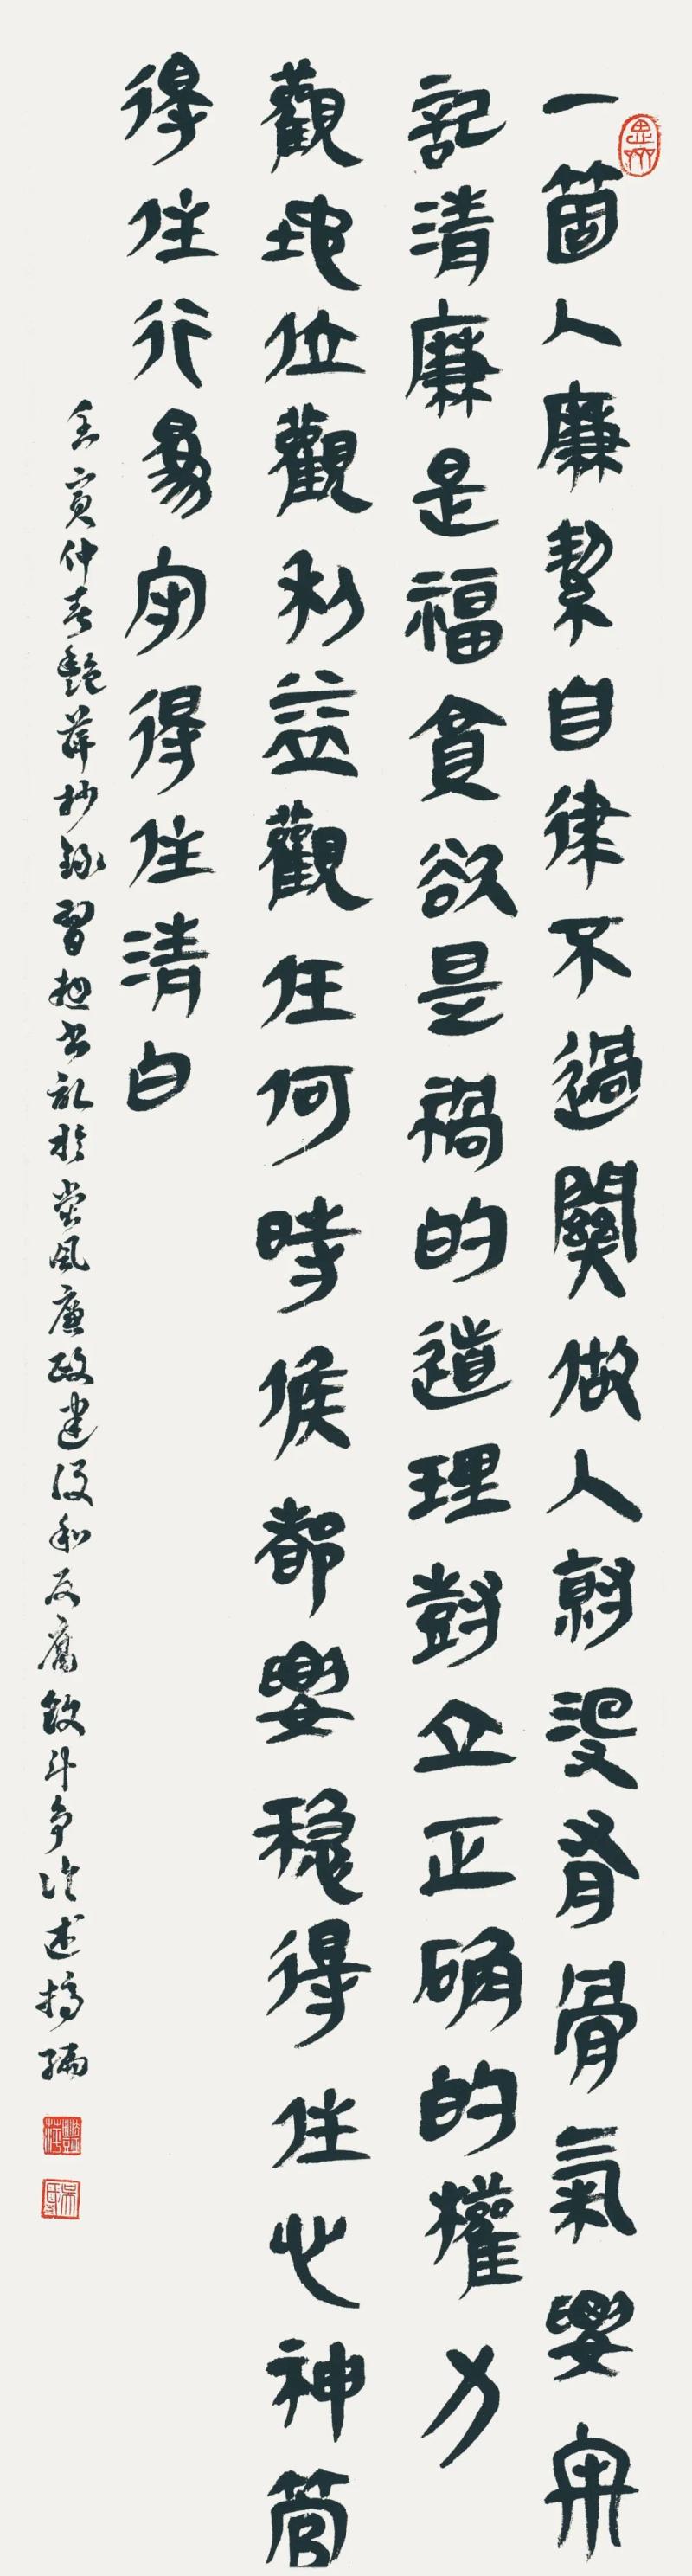 一箇人廉絜自律不過關做人就没有骨氣要牢
記清廉是福貪欲是禍的道理樹立正确的權力
觀地位觀利益觀任何時候都要穩得住心神管
得住行為守得住清白
壬寅仲春艷萍抄録習總書記於党風廉政建设和反腐敗斗争论述摘编